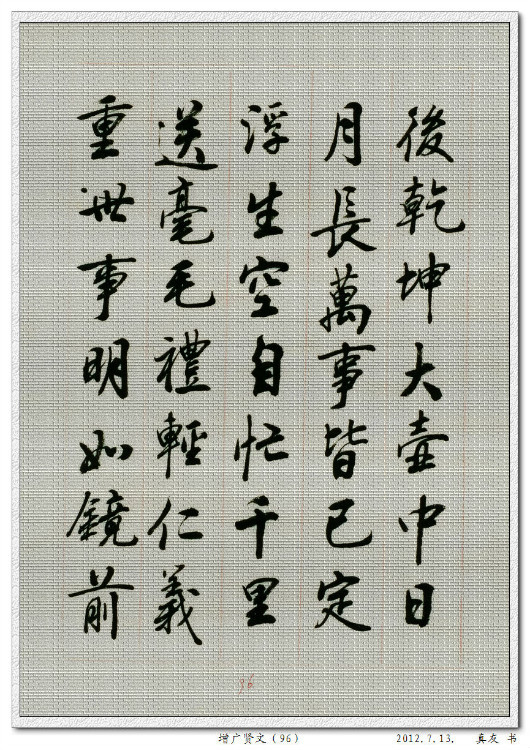 後乾坤大壺中日
月長萬事皆已定
浮生空自忙千里
送毫毛禮輕仁義
重世事明如鏡前
96
增广贤文(96)
2012.7.13. 真友 书